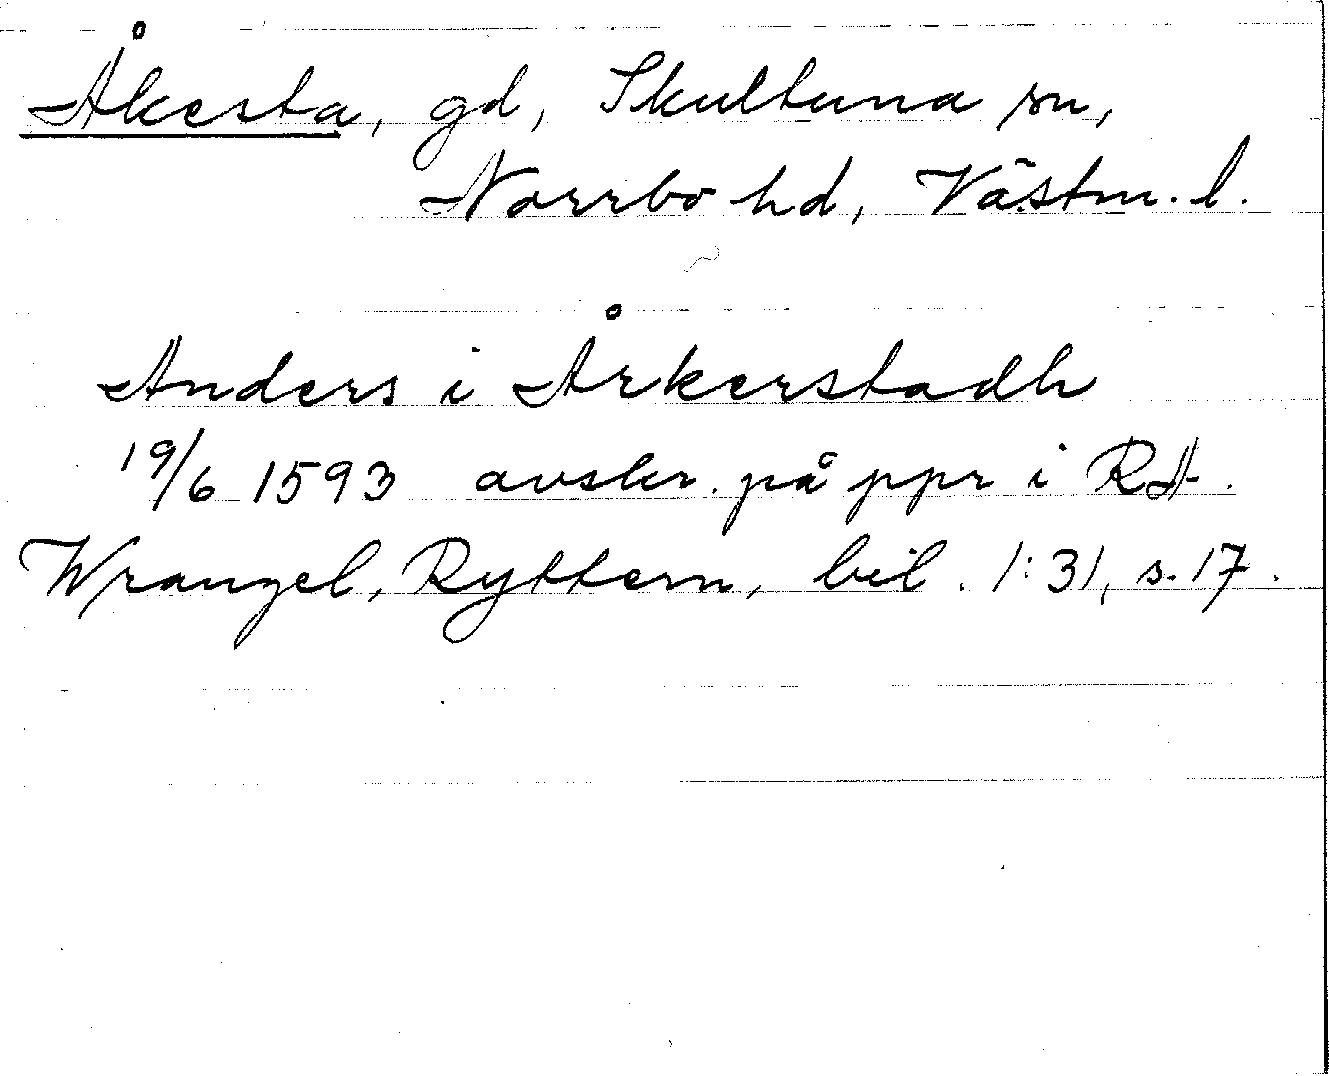 Åkesta, gd, Skultuna sn,
Norrbo hd, Västm. l.
Anders i Årkerstadh
19/6 1593 avskr. på ppr i RA.
Wrangel, Ryttern, bil. 1:31, s. 17.